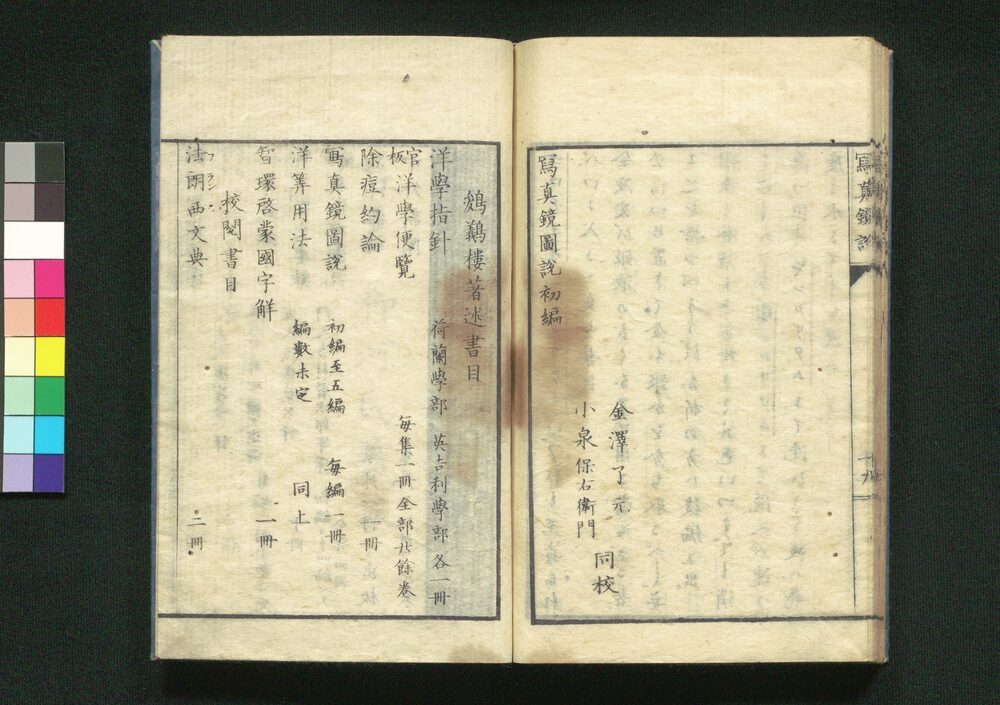 寫真鏡說
十九
金澤了元
小泉保右衛門
同校
寫真鏡圖說初編
鵵鵜樓著述書目
洋學指針 荷蘭學部 英吉利學部 各一冊
官板 洋學便覽 每集一冊全部廿餘卷
除痘約論 一冊
寫真鏡圖說 初編至五編 每編一冊
洋筭用法 編數未定 同上
智環啓蒙國字解 一冊
校閱書目
法朗西文典 二冊